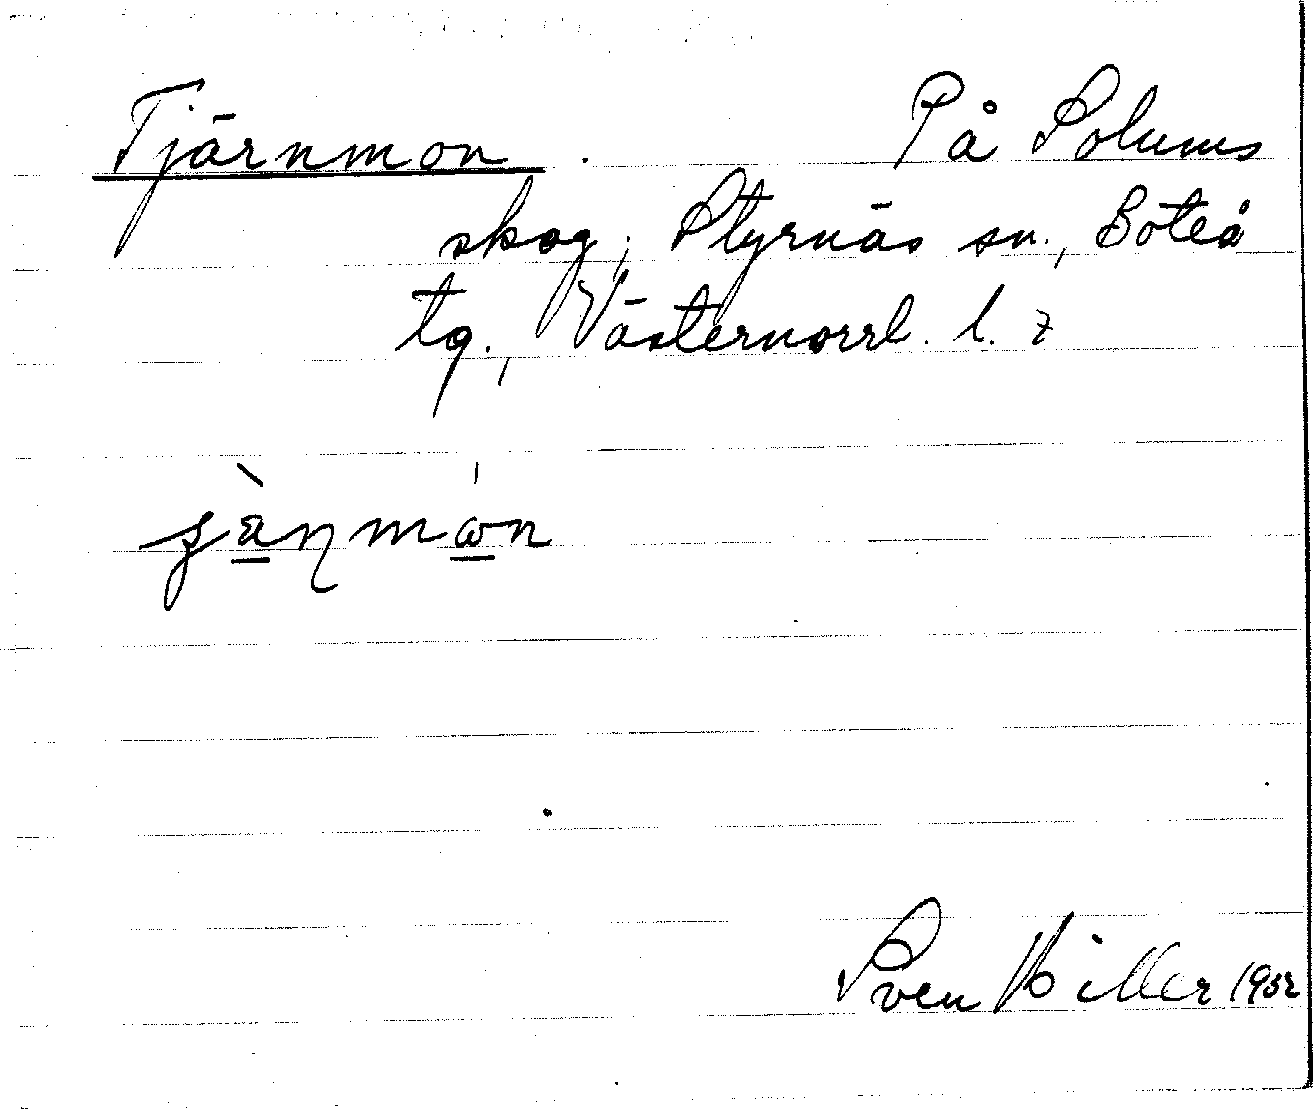 Tjärnmon. På Solums
skog, Styrnäs sn., Boteå
tg., Västernorrl. l. z
Sven Hiller 1952